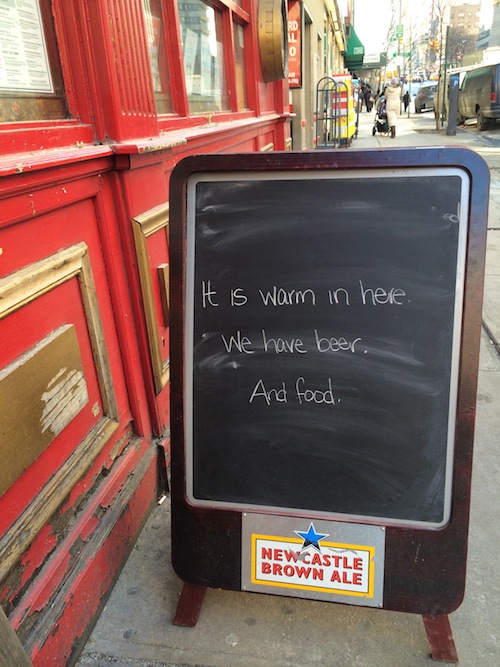 It is warm in here.
We have beer.
And food.
NEWCASTLE
BROWN ALE